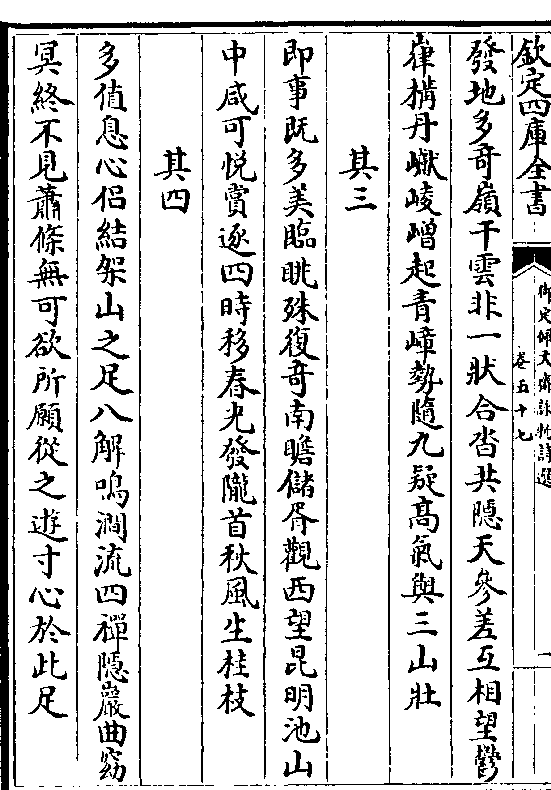 欽定四庫全書
御定佩文齋詠物詩選
卷五十七
發地多奇嶺干雲非一狀合沓共隱天參差互相望鬱
嵂構丹巘崚嶒起青嶂勢隨九疑高氣與三山壯
其三
即事既多美臨眺殊復奇南瞻儲胥觀西望昆明池山
中咸可悅賞逐四時移春光發隴首秋風生桂枝
其四
多值息心侶結架山之足八解鳴澗流四禪隱巖曲窈
冥終不見蕭條無可欲所願從之遊寸心於此足